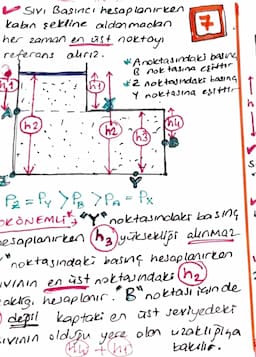 ✓ Sıvı Basıncı hesaplanırken
kabın şekline aldanmadan
her zaman en üst noktayı
referans alırız.
7
* A noktasındaki basınç
B noktasına eşittir
* Z noktasındaki basınç
Y noktasına eşittir.
h1
h1
A
X
h2
h2
h3
h4
B
Z
Y
h
PZ = PY > PB > PA = PX
ÇOK ÖNEMLİ * "Y" noktasındaki basınç
hesaplanırken h3 yüksekliği alınmaz
noktasındaki basınç hesaplanırken
sıvının en üst noktasındaki h2
hesaplanır. "B" noktası için de
değil kaptaki en üst seviyedeki
sıvının olduğu yere olan uzaklığına
h4 + h1 bakılır.